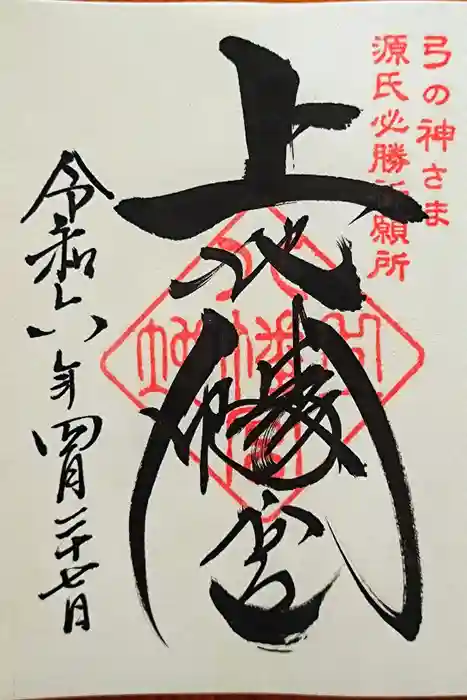 弓の神さま
源氏必勝祈願所
上地八幡宮
令和六年四月二十七日